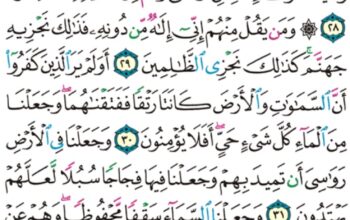 ٢٨ ۞ وَمَن يَقُلْ مِنْهُمْ إِنِّىٓ إِلَٰهٌ مِّن دُونِهِۦ فَذَٰلِكَ نَجْزِيهِ
جَهَنَّمَ ۚ كَذَٰلِكَ نَجْزِى ٱلظَّٰلِمِينَ ٢٩ أَوَلَمْ يَرَ ٱلَّذِينَ كَفَرُوٓا۟
أَنَّ ٱلسَّمَٰوَٰتِ وَٱلْأَرْضَ كَانَتَا رَتْقًا فَفَتَقْنَٰهُمَا ۖ وَجَعَلْنَا
مِنَ ٱلْمَآءِ كُلَّ شَىْءٍ حَىٍّ ۖ أَفَلَا يُؤْمِنُونَ ٣٠ وَجَعَلْنَا فِى ٱلْأَرْضِ
رَوَٰسِىَ أَن تَمِيدَ بِهِمْ وَجَعَلْنَا فِيهَا فِجَاجًا سُبُلًا لَّعَلَّهُمْ
يَهْتَدُونَ ٣١ وَجَعَلْنَا ٱلسَّمَآءَ سَقْفًا مَّحْفُوظًا ۖ وَهُمْ عَنْ